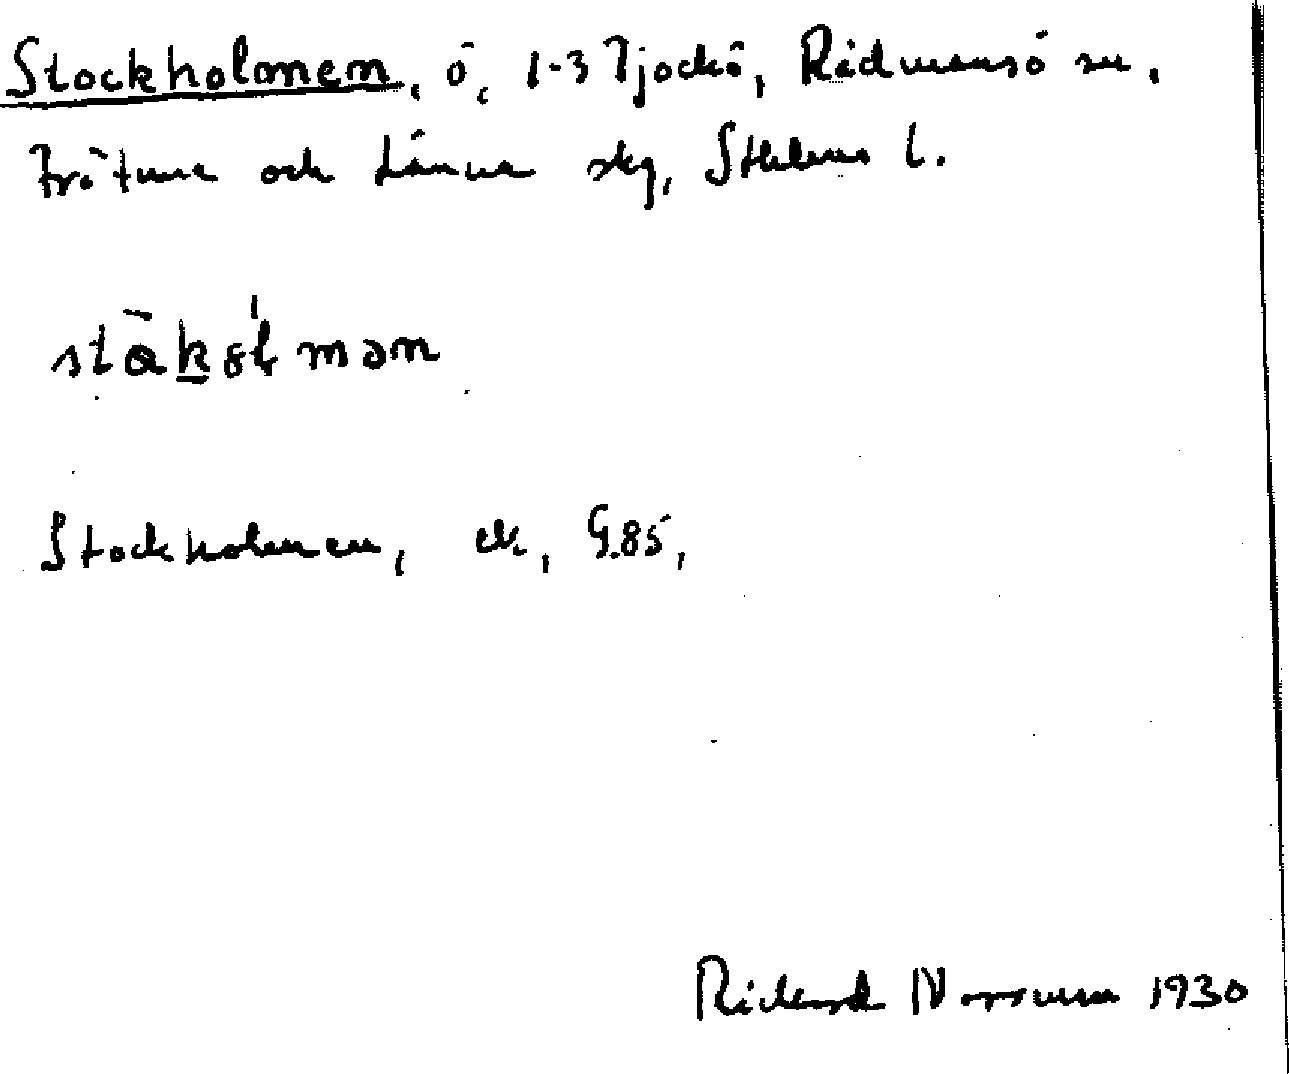 Stockholmen, ö, 1-3 Tjockö, Rådmansö sn,
Frötuna och Länna skg, Sthlms l.
stàkólmən
Stockholmen, ek, G.85,
Rickard Norrman 1930